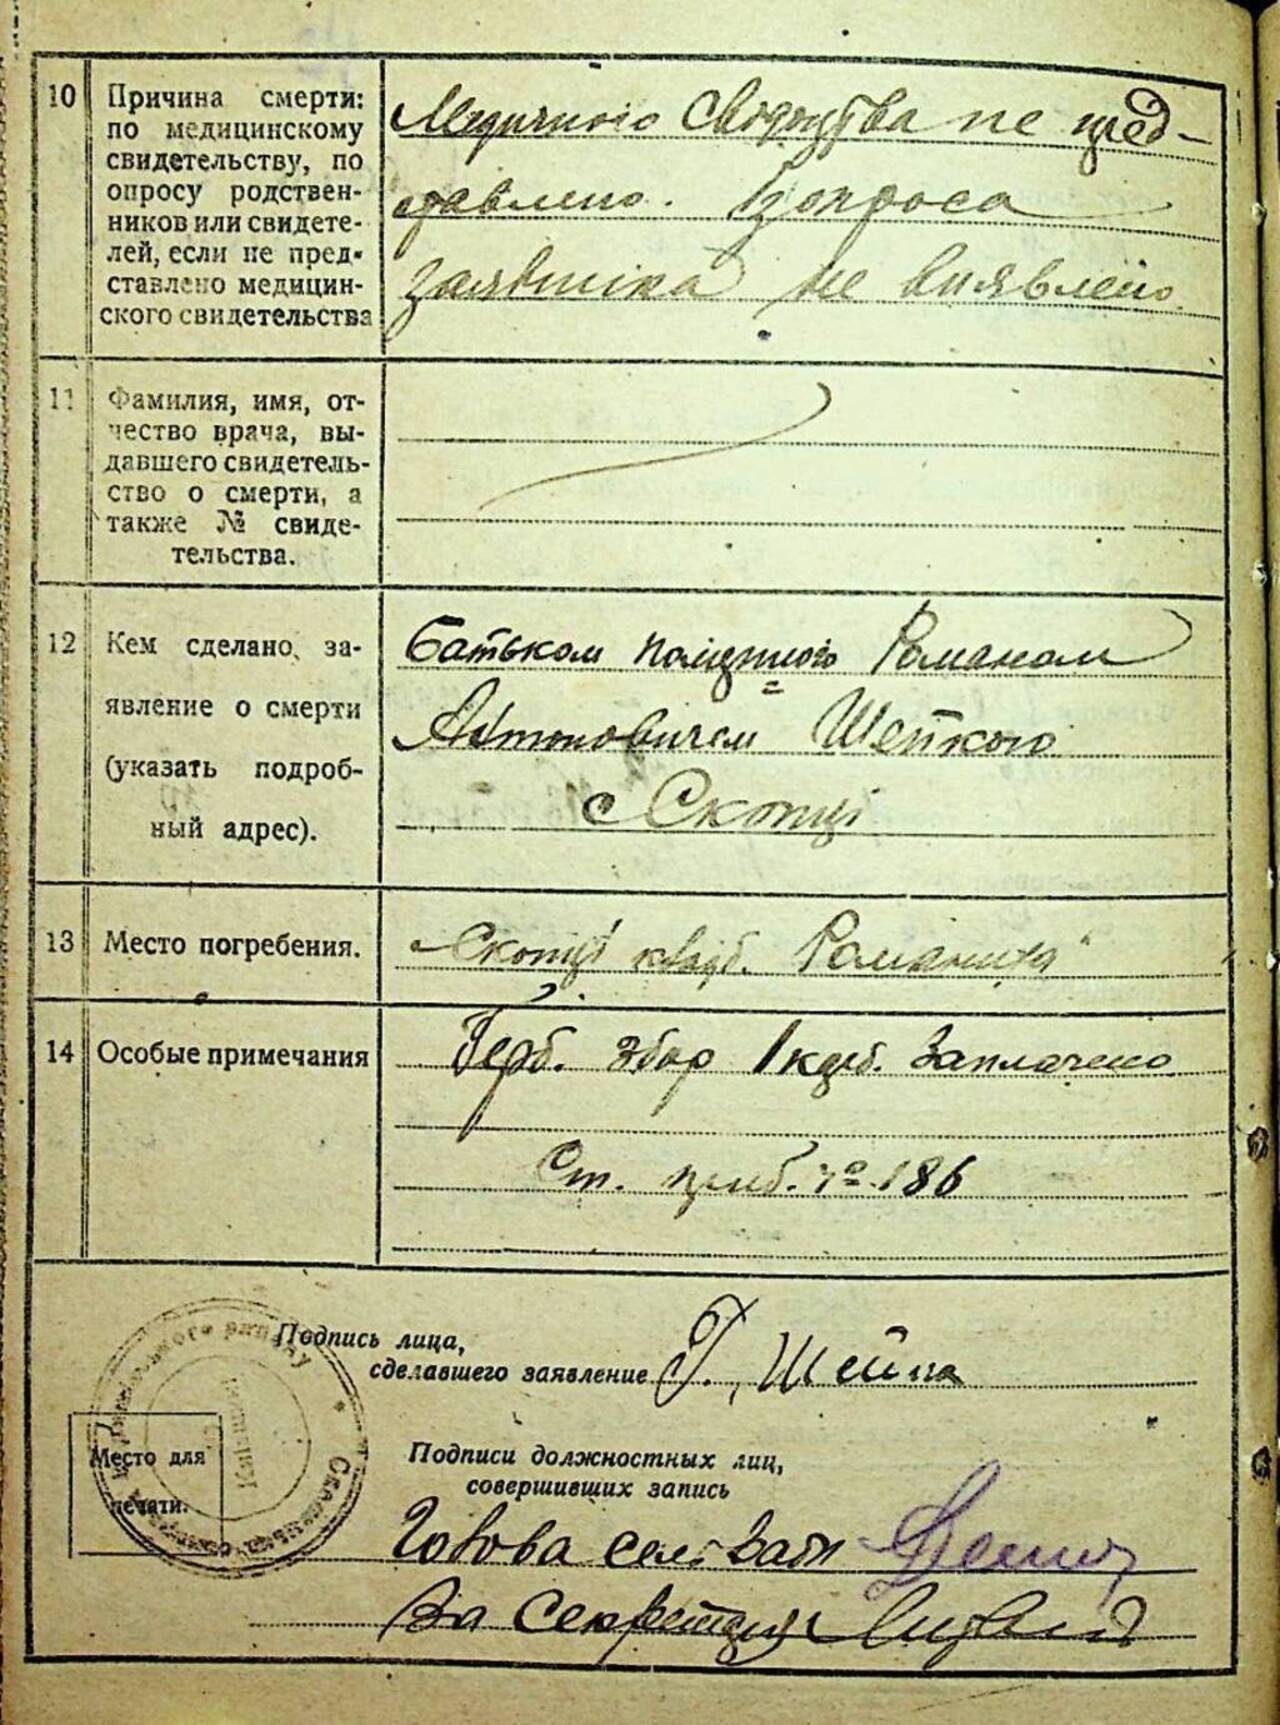 10 Причина смерти:
по медицинскому
свидетельству, по
опросу родствен-
ников или свидете-
лей, если не пред-
ставлено медицин-
ского свидетельства
Медичного свідоцтва не пред-
ставлено. З опроса
заявтіка не виявлено
11 Фамилия, имя, от-
чество врача, вы-
давшего свидетель-
ство о смерти, а
также № свиде-
тельства.
12 Кем сделано за-
явление о смерти
(указать подроб-
ный адрес).
Батьком Романом
Антоновичем
с Скопці
13 Место погребения.
Скопці кладб.
14 Особые примечания
Герб. збор 1 карб. Заплачено
Ст. № 186
Подпись лица,
сделавшего заявление Г. Шейка
Место для
печати.
Подписи должностных лиц,
совершивших запись
Голова сельради
За Секретаря